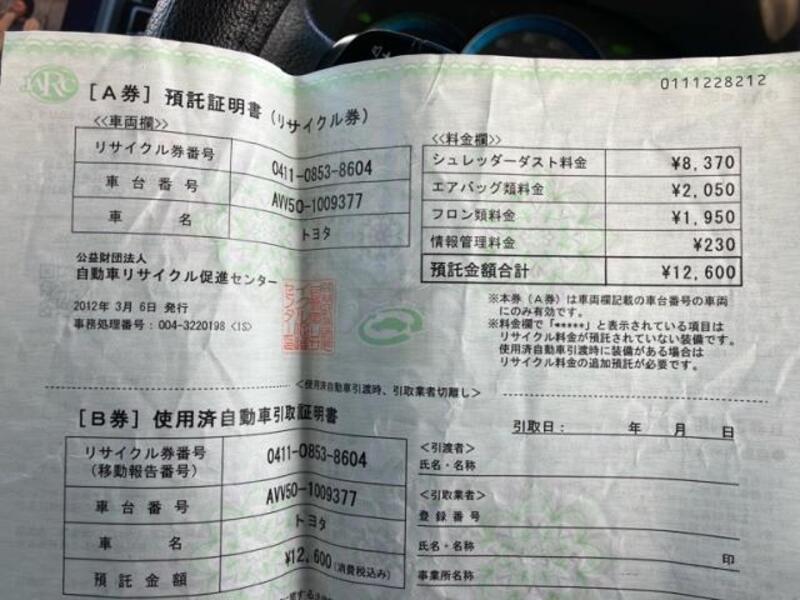 JARC
0111228212
[A券] 預託証明書(リサイクル券)
≪車両欄≫
リサイクル券番号 0411-0853-8604
車台番号 AVV50-1009377
車名 トヨタ
公益財団法人
自動車リサイクル促進センター
2012年 3月 6日 発行
事務処理番号:004-3220198 <IS>
≪料金欄≫
シュレッダーダスト料金 ¥8,370
エアバッグ類料金 ¥2,050
フロン類料金 ¥1,950
情報管理料金 ¥230
預託金額合計 ¥12,600
※本券(A券)は車両欄記載の車台番号の車両
にのみ有効です。
※料金欄で「*****」と表示されている項目は
リサイクル料金が預託されていない装備です。
使用済自動車引渡時に装備がある場合は
リサイクル料金の追加預託が必要です。
<使用済自動車引渡時、引取業者切離し>
[B券] 使用済自動車引取証明書
リサイクル券番号
(移動報告番号) 0411-0853-8604
車台番号 AVV50-1009377
車名 トヨタ
預託金額 ¥12,600(消費税込み)
引取日: 年 月 日
<引渡者>
氏名・名称
<引取業者>
登録番号
氏名・名称 印
事業所名称